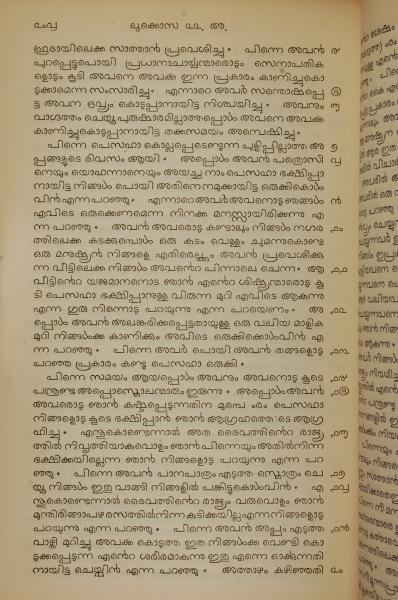 ൨൦൮ ലൂക്കൊസ ൨൨. അ.
ഹൂദായിലെക്ക സാത്താൻ പ്രവെശിച്ചു • പിന്നെ അവൻ ൪
പുറപ്പെട്ടുപൊയി പ്രധാനാചാൎയ്യന്മാരൊടും സെനാപതിക
ളൊടും കൂടി അവനെ അവൎക്ക ഇന്ന പ്രകാരം കാണിച്ചുകൊ
ടുക്കാമെന്ന സംസാരിച്ചു • എന്നാറെ അവർ സന്തൊഷപ്പെ ൫
ട്ട അവന ദ്രവ്യം കൊടുപ്പാനായിട്ട നിശ്ചയിച്ചു • അവനും ൬
വാഗ്ദത്തം ചെയ്തു പുരുഷാരമില്ലാത്തപ്പൊൾ അവനെ അവൎക്ക
കാണിച്ചുകൊടുപ്പാനായിട്ട തക്കസമയം അന്വെഷിച്ചു •
പിന്നെ പെസഹാ കൊല്ലപ്പെടെണ്ടുന്ന പുളിപ്പില്ലാത്ത അ ൭
പ്പങ്ങളുടെ ദിവസം ആയി • അപ്പൊൾ അവൻ പത്രൊസി ൮
നെയും യൊഹന്നാനെയും അയച്ച നാം പെസഹാ ഭക്ഷിപ്പാ
നായിട്ട നിങ്ങൾ പൊയി അതിനെ നമുക്കായിട്ട ഒരുക്കികൊൾ
വിൻ എന്ന പറഞ്ഞു • എന്നാറെ അവർ അവനൊടു ഞങ്ങൾ ൯
എവിടെ ഒരുക്കെണമെന്ന നിനക്ക മനസ്സായിരിക്കുന്നു എ
ന്ന പറഞ്ഞു • അവൻ അവരൊടു കണ്ടാലും നിങ്ങൾ നഗര ൧൦
ത്തിലെക്ക കടക്കുപൊൾ ഒരു കുടം വെള്ളം ചുമന്നുകൊണ്ട
ഒരു മനുഷ്യൻ നിങ്ങളെ എതിരെല്ക്കും അവൻ പ്രവെശിക്കു
ന്ന വീട്ടിലെക്ക നിങ്ങൾ അവന്റെ പിന്നാലെ ചെന്ന • ആ ൧൧
വീട്ടിന്റെ യജമാനനൊട ഞാൻ എന്റെ ശിഷ്യന്മാരൊടു കൂ
ടി പെസഹാ ഭക്ഷിപ്പാനുള്ള വിരുന്ന മുറി എവിടെ ആകുന്നു
എന്ന ഗുരു നിന്നൊടു പറയുന്നു എന്ന പറയെണം • അ ൧൨
പ്പൊൾ അവൻ അലങ്കരിക്കപ്പെട്ടതായുള്ള ഒരു വലിയ മാളിക
മുറി നിങ്ങൾക്ക കാണിക്കും അവിടെ ഒരുക്കിക്കൊൾവിൻ എ
ന്ന പറഞ്ഞു • പിന്നെ അവർ പൊയി അവൻ തങ്ങളൊടു ൧൩
പറഞ്ഞ പ്രകാരം കണ്ടു പെസഹാ ഒരുക്കി •
പിന്നെ സമയം ആയപ്പൊൾ അവനും അവനൊടു കൂടെ ൧൪
പന്ത്രണ്ടു അപ്പൊസ്തൊലന്മാരും ഇരുന്നു • അപ്പൊൾ അവൻ ൧൫
അവരൊടു ഞാൻ കഷ്ടപ്പെടുന്നതിന മുമ്പെ ൟ പെസഹാ
നിങ്ങളൊടു കൂടെ ഭക്ഷിപ്പാൻ ഞാൻ ആഗ്രഹത്തൊടെ ആഗ്ര
ഹിച്ചു • എന്തുകൊണ്ടെന്നാൽ അത ദൈവത്തിന്റെ രാജ്യ ൧൬
ത്തിൽ നിവൃത്തിയാകുവൊളം ഞാൻ പിന്നെയും അതിൽനിന്ന
ഭക്ഷിക്കയില്ലെന്ന ഞാൻ നിങ്ങളൊടു പറയുന്നു എന്ന പറ
ഞ്ഞു • പിന്നെ അവൻ പാനപാത്രം എടുത്ത സ്തൊത്രം ചെ ൧൭
യ്തു നിങ്ങൾ ഇതു വാങ്ങി നിങ്ങളിൽ പങ്കിട്ടുകൊൾവിൻ • എ ൧൮
ന്തുകൊണ്ടെന്നാൽ ദൈവത്തിന്റെ രാജ്യം വരുവൊളം ഞാൻ
മുന്തിരിങ്ങാപഴരസത്തിൽനിന്ന കുടിക്കയില്ല എന്ന നിങ്ങളൊടു
പറയുന്നു എന്ന പറഞ്ഞു • പിന്നെ അവൻ അപ്പം എടുത്ത ൧൯
വാഴ്ത്തി മുറിച്ചു അവൎക്ക കൊടുത്ത ഇത നിങ്ങൾക്ക വെണ്ടി കൊ
ടുക്കപ്പെടുന്ന എന്റെ ശരീരമാകുന്നു ഇതു എന്നെ ഓൎക്കുന്നതി
നായിട്ട ചെയ്വിൻ എന്ന പറഞ്ഞു • അത്താഴം കഴിഞ്ഞതി ൨൦